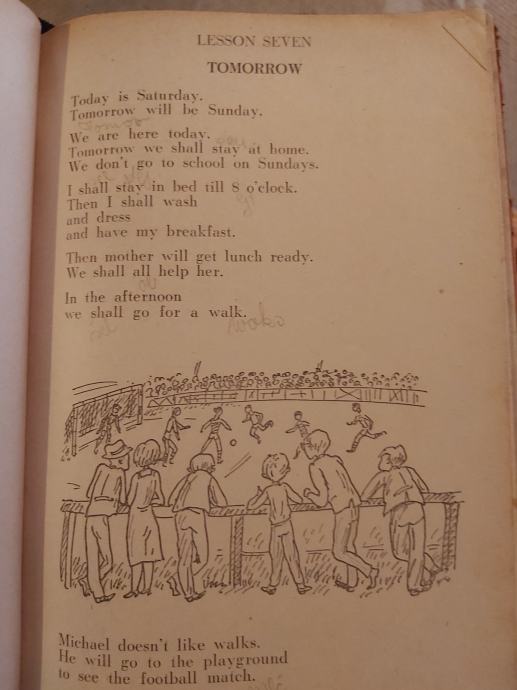 LESSON SEVEN
TOMORROW
Today is Saturday.
Tomorrow will be Sunday.
We are here today.
Tomorrow we shall stay at home.
We don't go to school on Sundays.
I shall stay in bed till 8 o'clock.
Then I shall wash
and dress
and have my breakfast.
Then mother will get lunch ready.
We shall all help her.
In the afternoon
we shall go for a walk.
Michael doesn't like walks.
He will go to the playground
to see the football match.